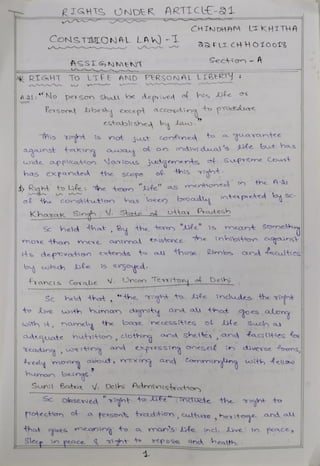 RIGHTS UNDER ARTICLE-21
CHINDHAM LIKHITHA
CONSTITIONAL LAW - I
22FLICHH01008
ASSIGNMENT
Section - A
* RIGHT TO LIFE AND PERSONAL LIBERTY :
A.21: "No person shall be deprived of his life or
Personal liberty except according to procedure
established by law."
This right is not just confined to a guarantee
against taking away of an individual's life but has
wide application. Various judgements of Supreme Court
has expanded the scope of this right.
1) Right to life: The term "Life" as mentioned in the A.21
of the constitution has been broadly interpreted by SC.
Kharak Singh V. State of Uttar Pradesh
SC held that, By the term "life" is meant something
more than mere animal existence. The inhibition against
its deprivation extends to all those limbs and faculties
by which life is enjoyed.
Francis Coralie V. Union Territory of Delhi
SC held that, "the right to life includes the right
to live with human dignity and all that goes along
with it, namely the bare necessities of life such as
adequate nutrition, clothing and shelter, and facilities for
reading, writing and expressing oneself in diverse forms,
freely moving about, mixing and commingling with fellow
human beings"
Sunil Batra V. Delhi Administration
SC observed "right to life" include the right to
protection of a person's tradition, culture, heritage and all
that gives meaning to a man's life incl. live in peace,
Sleep in peace & right to repose and health.
1.